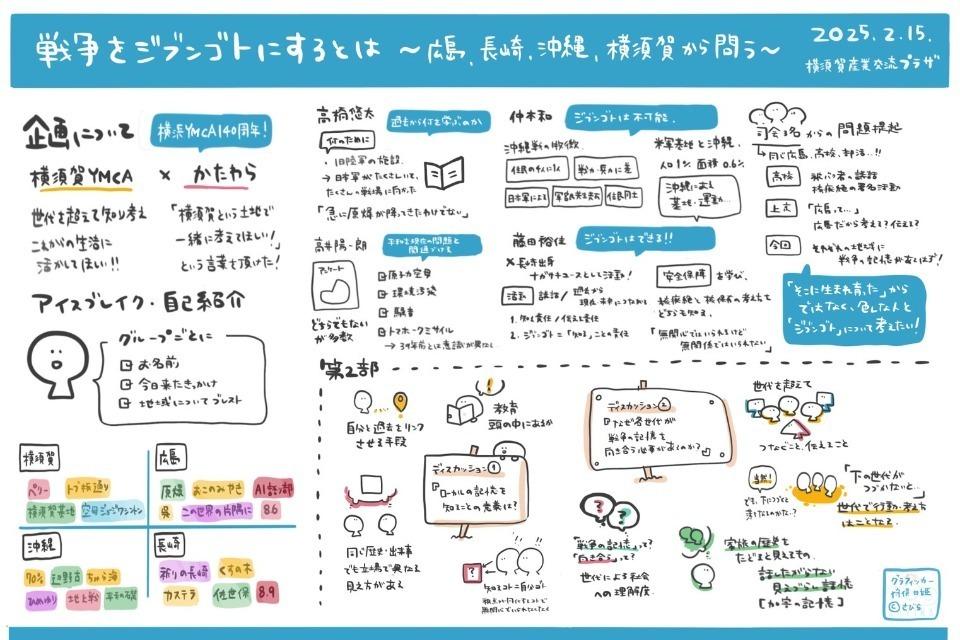 戦争をジブンゴトにするとは ～広島、長崎、沖縄、横須賀から問う～
2025.2.15.
横須賀産業交流プラザ
企画について
横浜YMCA140周年!
横須賀YMCA × かたわら
世代を超えて知り考え
これからの生活に
活かしてほしい!!
「横須賀という土地で
一緒に考えてほしい!」
という言葉を頂けた!
アイスブレイク・自己紹介
グループごとに
お名前
今日来たきっかけ
地域についてブレスト
横須賀
ペリー
ドブ板通り
横須賀基地
空母ジョージワシントン
広島
原爆
おこのみやき
AI証言部
呉
この世界の片隅に
8.6
沖縄
70%
辺野古
ちゅら海
ひめゆり
地上戦
平和の礎
長崎
祈りの長崎
くすの木
カステラ
佐世保
8.9
高橋悠太
過去から何を学ぶのか
何のために
・旧陸軍の施設
→日本軍がたくさんいて、
たくさんの戦場に向かった
「急に原爆が降ってきたわけでない」
高井陽一郎
平和を現在の問題と
関連づける
アンケート
どちらでもない
が多数
原子力空母
環境汚染
騒音
トマホークミサイル
→39年前とは意識が異なる
仲本和
ジブンゴトは不可能
沖縄戦の特徴
米軍基地と沖縄
人口1% 面積0.6%
沖縄における
基地・運動…
藤田裕佳
ジブンゴトはできる!!
×長崎出身
ナガサキユースとして活動!
活動
講話/過去から
現在・未来につながる
1. 知る責任/伝える責任
2. ジブンゴト=「知る」ことの責任
安全保障を学び、
核廃絶と核保有の考え方
どちらも知る。
「無関心ではいられるけど
無関係ではいられない」
司会3名からの問題提起
↳同じ広島、高校、部活…!!
高校
被バク者の証言
核廃絶の署名活動
上京
「広島って…」
広島だから考える?伝える?
今回
それぞれの地域に
戦争の記憶があるはず!
「そこに生まれ育った」から
ではなく、色んな人と
「ジブンゴト」について考えたい!
第2部
自分と過去をリンク
させる手段
教育
頭の中にあるか
ディスカッション①
『ローカルの記憶を
知ることの意義は?
同じ歴史・出来事
でも立場で異なる
見え方がある
知ること＝自分ゴト
ディスカッション②
『なぜ各世代が
戦争の記憶と
向き合う必要があるのか?
世代を超えて
つなぐこと、伝えること
「下の世代が
つづかないと…」
世代で行動・考え方
はことなる
「戦争の記憶」って?
「向き合う」って?
世代による社会
への理解度
家族の歴史を
たどると見えるもの
話したがらない
見えづらい記憶
[加害の記憶]
グラフィッカー
©さびら